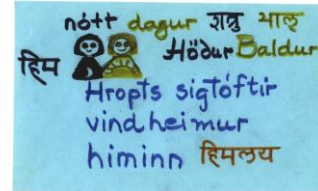 nótt dagur शत्रु भालू
हिम Höður Baldur
Hropts sigtóftir
vindheimur
himinn हिमलय